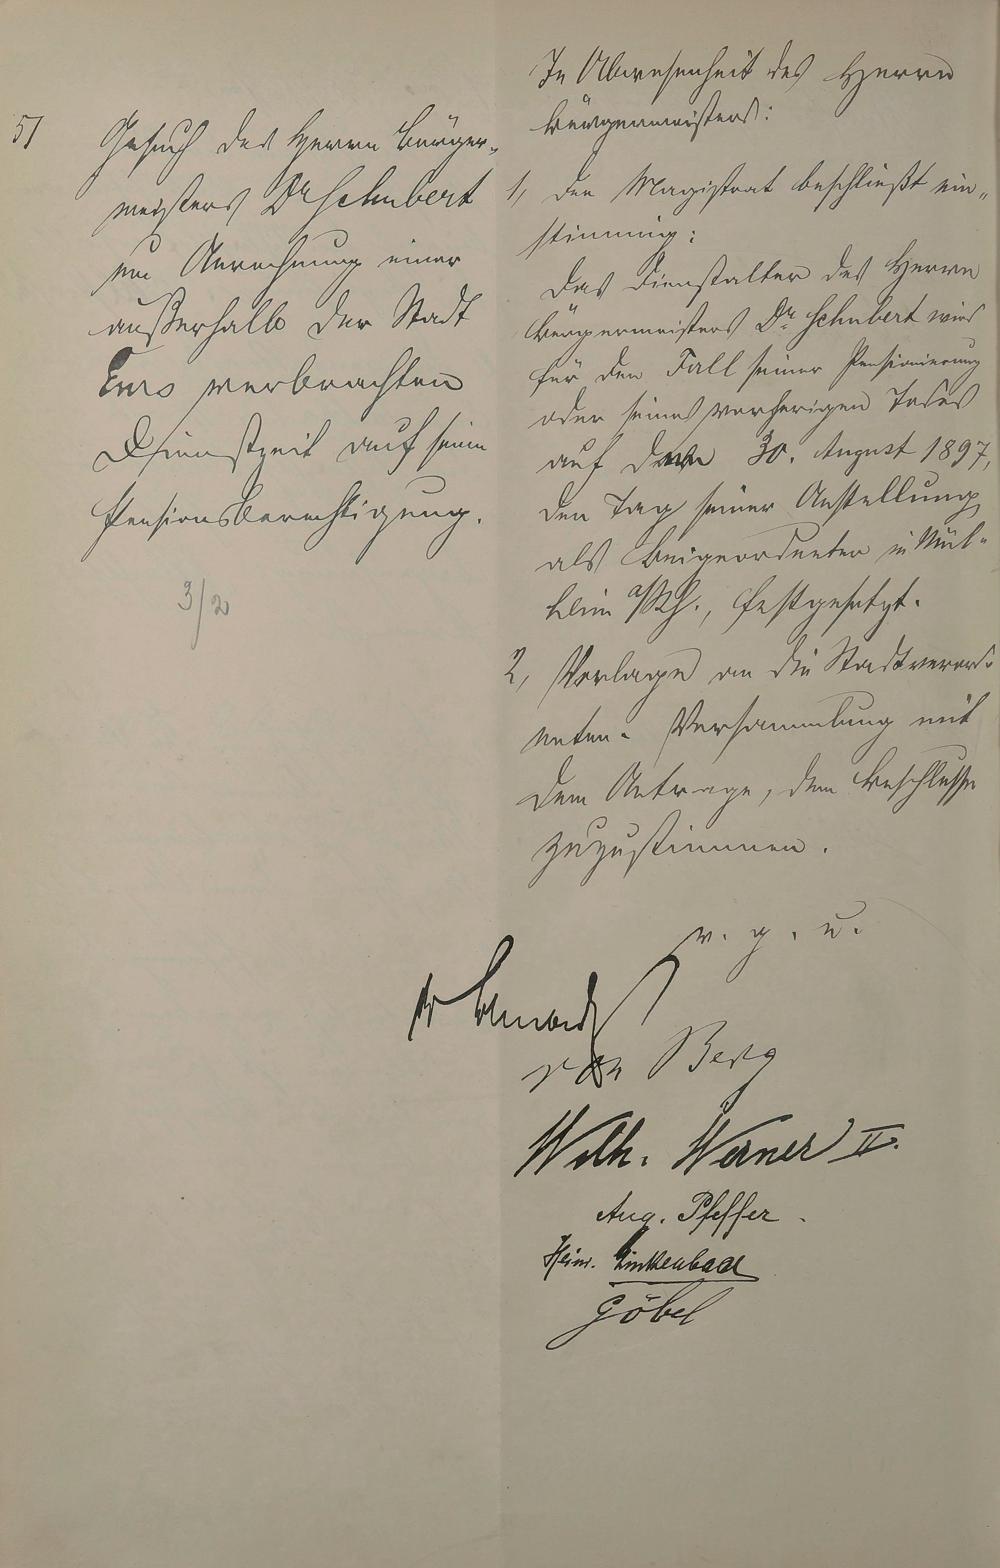 51
Gesuch des Herrn Bürger-
meisters Dr Schubert
um Anrechnung einer
außerhalb der Stadt
Ems verbrachten
Dienstzeit auf seine
Pensionsberechtigung.
3/2
In Abwesenheit des Herrn
Bürgermeisters:
1, Der Magistrat beschließt ein-
stimmig:
Das Dienstalter des Herrn
Bürgermeisters Dr. Schubert wird
für den Fall seiner Pensionierung
oder seines vorherigen Todes
auf den 30. August 1897,
den Tag seiner Anstellung
als Beigeordneter in Mül-
heim a/Rh., festgesetzt.
2, Vorlage an die Stadtverord-
neten-Versammlung mit
dem Antrage, dem Beschlusse
zuzustimmen.
v. g. u.
von Berg
Wilh. Werner II.
Aug. Pfeffer.
Heinr. Linkenbach
Göbel